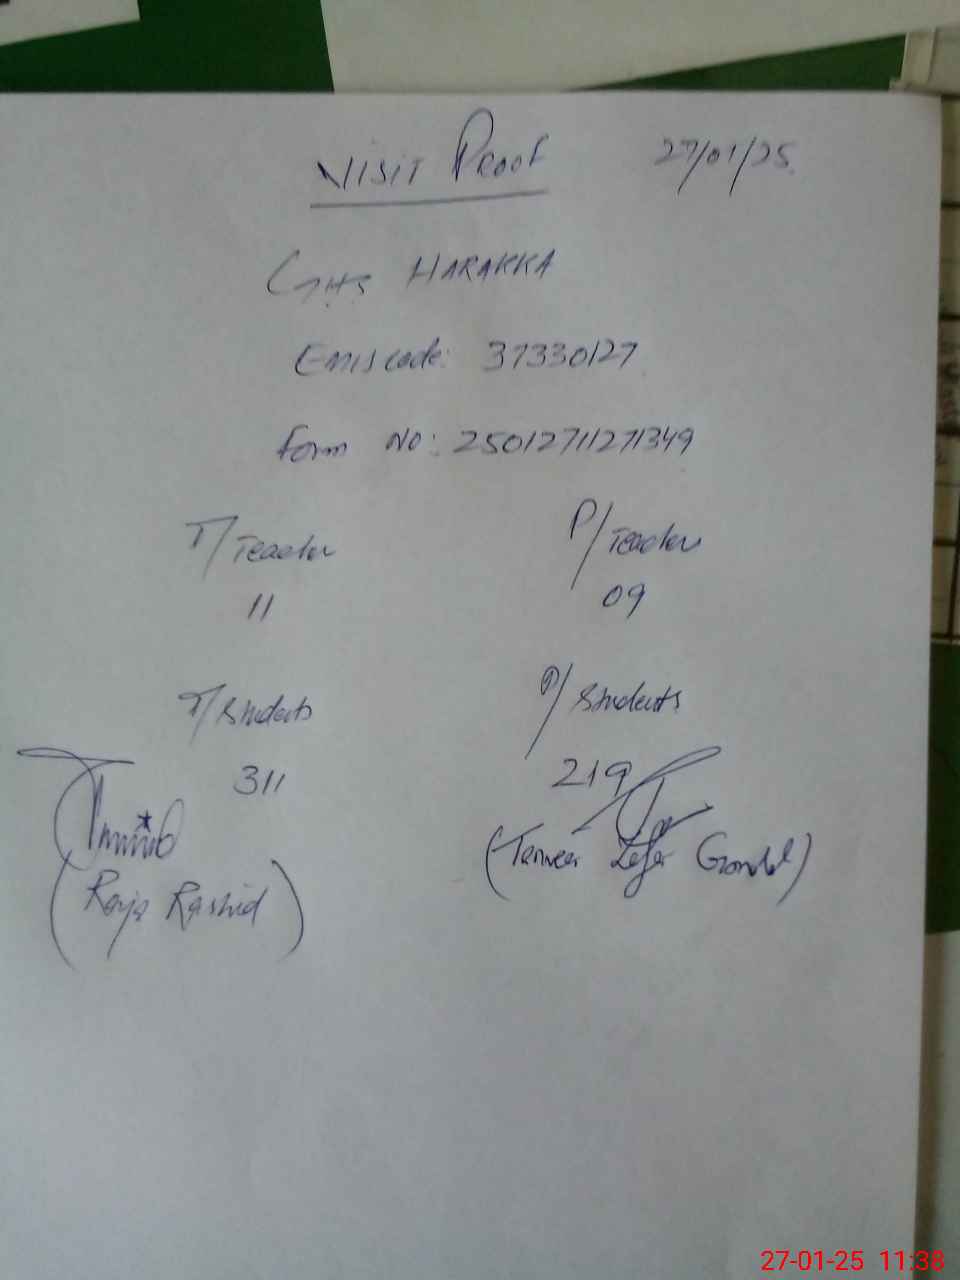 Visit Proof 27/01/25
GHS HARAKKA
Emis code: 37330127
Form No: 25012711271349
T/Teacher P/Teachers
11 09
T/Students P/Students
311 219
(Raja Rashid) (Tanveer Zafar Gondal)
27-01-25 11:38